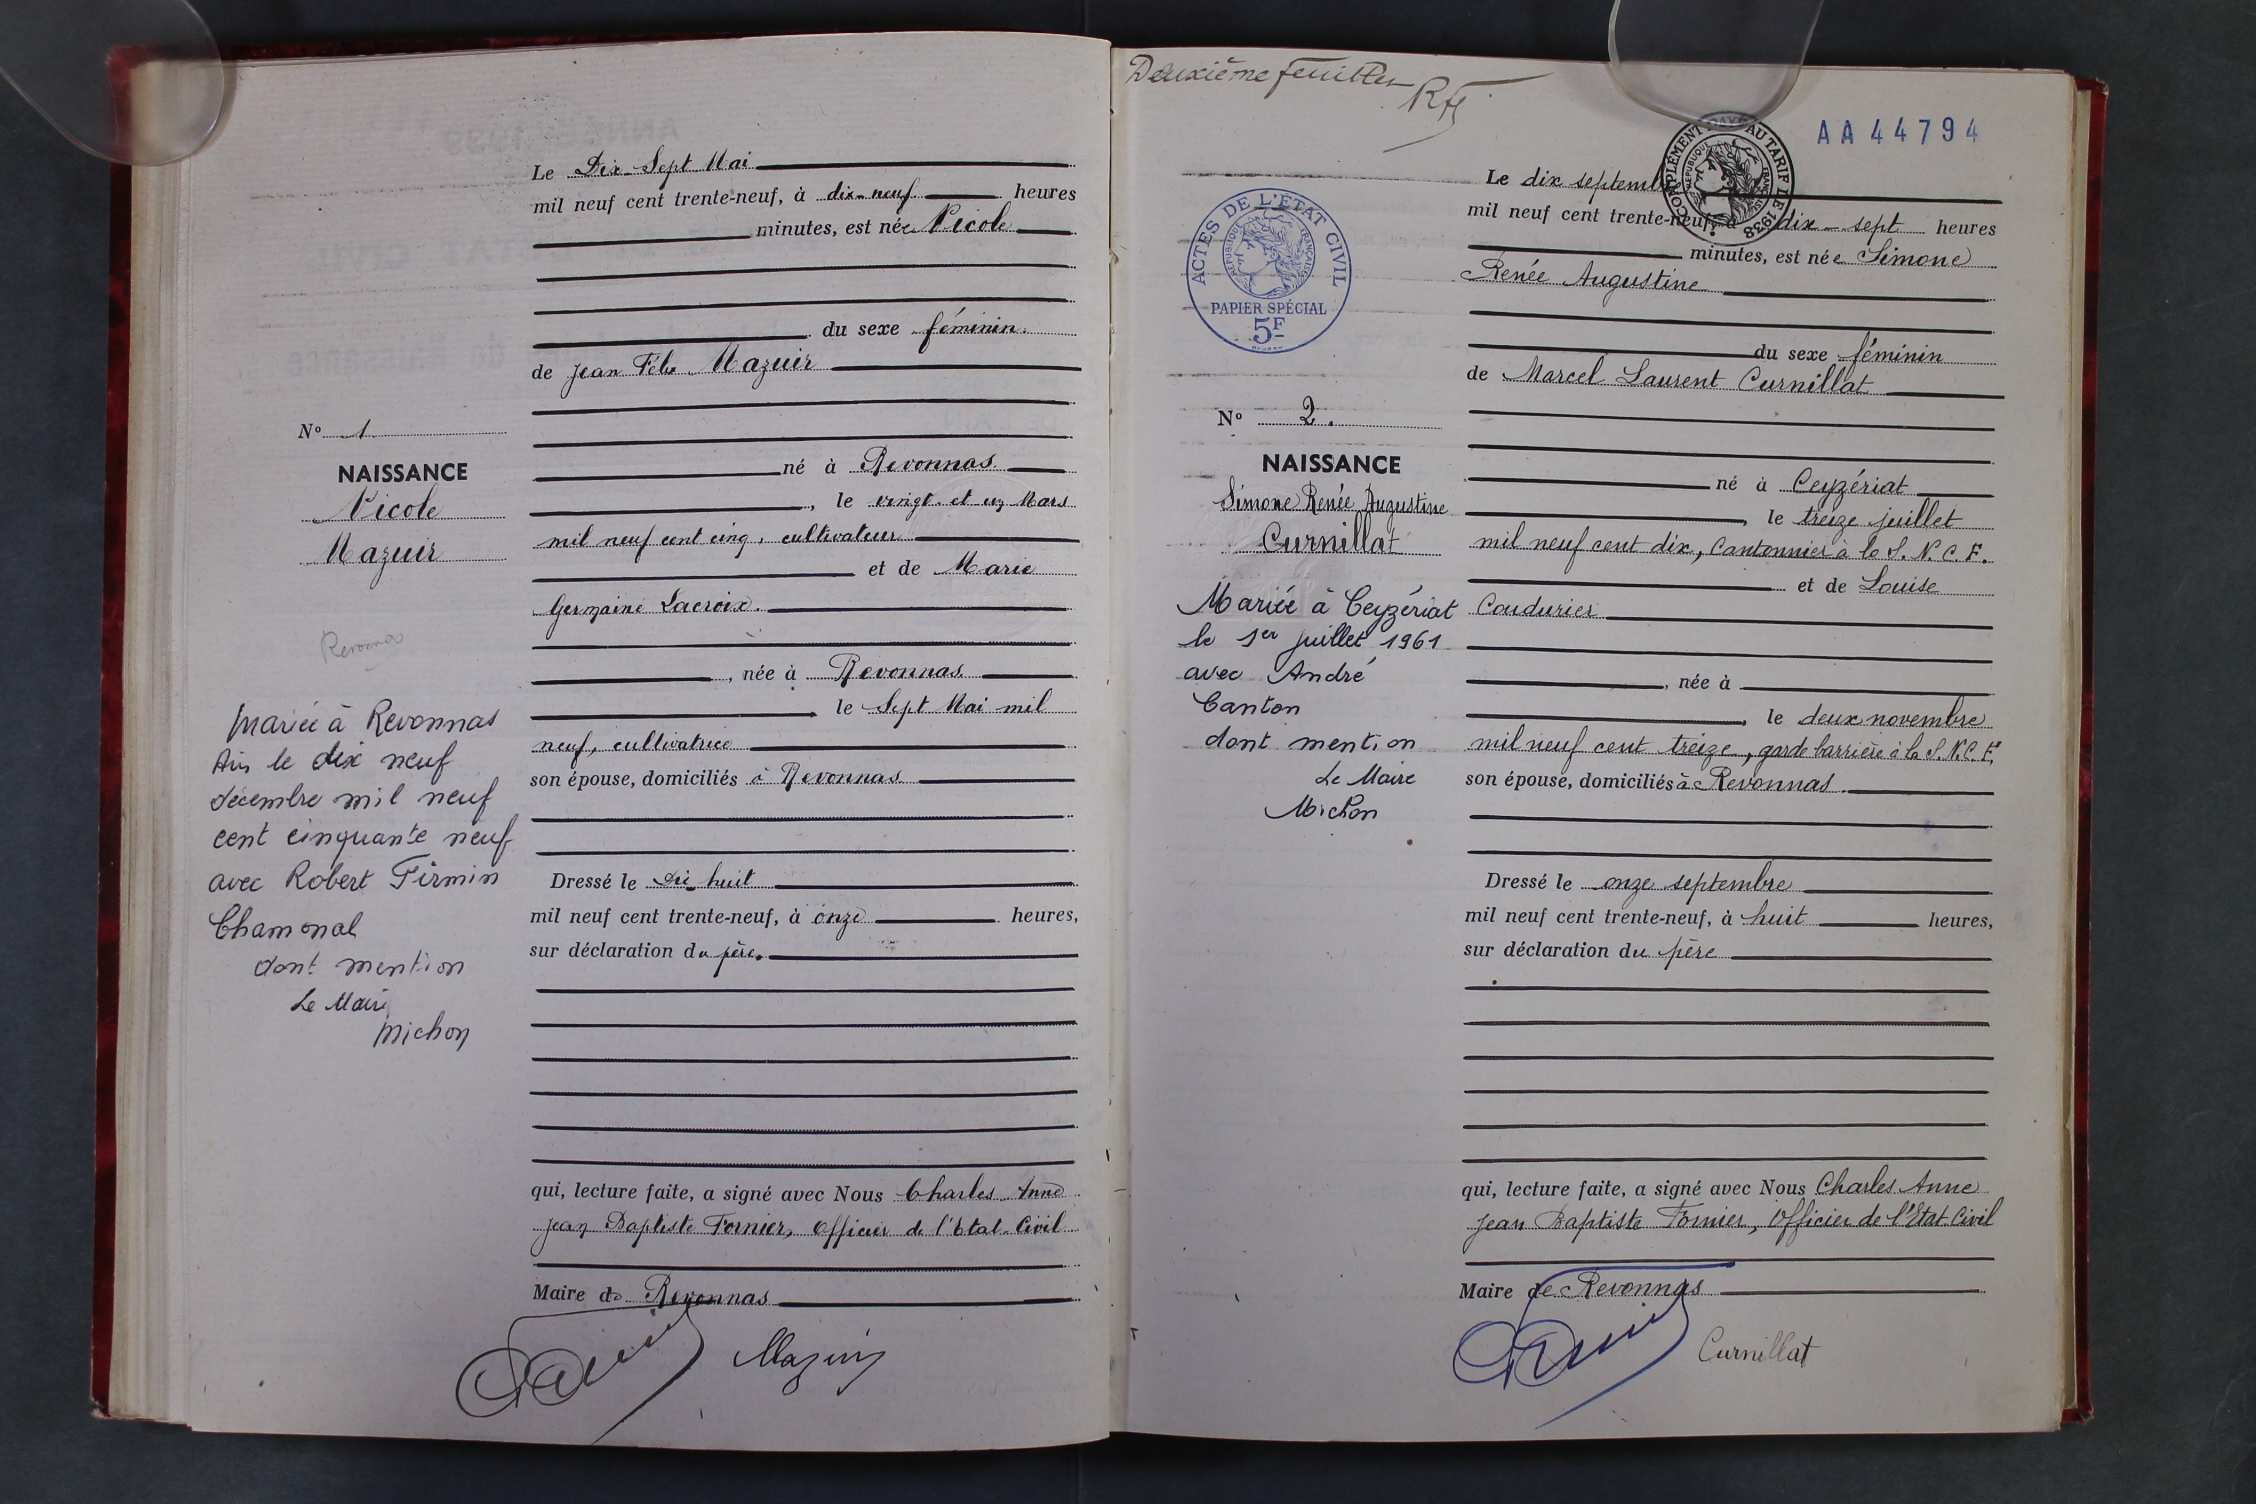 Le Dix-Sept Mai
mil neuf cent trente-neuf, à dix-neuf heures
minutes, est née Nicole
du sexe féminin.
de Jean Félix Mazuir
né à Revonnas
, le vingt et un Mars
mil neuf cent cinq, cultivateur
et de Marie
Germaine Lacroix.
, née à Revonnas
le Sept Mai mil
neuf, cultivatrice
son épouse, domiciliés à Revonnas
Dressé le Dix huit
mil neuf cent trente-neuf, à onze heures,
sur déclaration du père.
qui, lecture faite, a signé avec Nous Charles Anne
Jean Baptiste Fornier, Officier de l'Etat-Civil
Maire de Revonnas
Mazuir
No 1
NAISSANCE
Nicole
Mazuir
Revonnas
Mariée à Revonnas
Ain le dix neuf
décembre mil neuf
cent cinquante neuf
avec Robert Firmin
Chamonal
dont mention
Le Maire
Michon
Deuxième feuillet
AA44794
COMPLÉMENT PAYÉ AU TARIF DE 1938
RÉPUBLIQUE FRANÇAISE
ACTES DE L'ETAT CIVIL
RÉPUBLIQUE FRANÇAISE
PAPIER SPÉCIAL
5F
Le dix septembre
mil neuf cent trente-neuf, à dix-sept heures
minutes, est née Simone
Renée Augustine
du sexe féminin
de Marcel Laurent Curnillat
né à Ceyzériat
, le treize juillet
mil neuf cent dix, Cantonnier à la S.N.C.F.
et de Louise
Coudurier
, née à
, le deux novembre
mil neuf cent treize, garde barrière à la S.N.C.F.
son épouse, domiciliés à Revonnas.
Dressé le onze septembre
mil neuf cent trente-neuf, à huit heures,
sur déclaration du père
qui, lecture faite, a signé avec Nous Charles Anne
Jean Baptiste Fornier, Officier de l'Etat Civil
Maire de Revonnas
Curnillat
No 2.
NAISSANCE
Simone Renée Augustine
Curnillat
Mariée à Ceyzériat
le 1er juillet 1961
avec André
Canton
dont mention
Le Maire
Michon